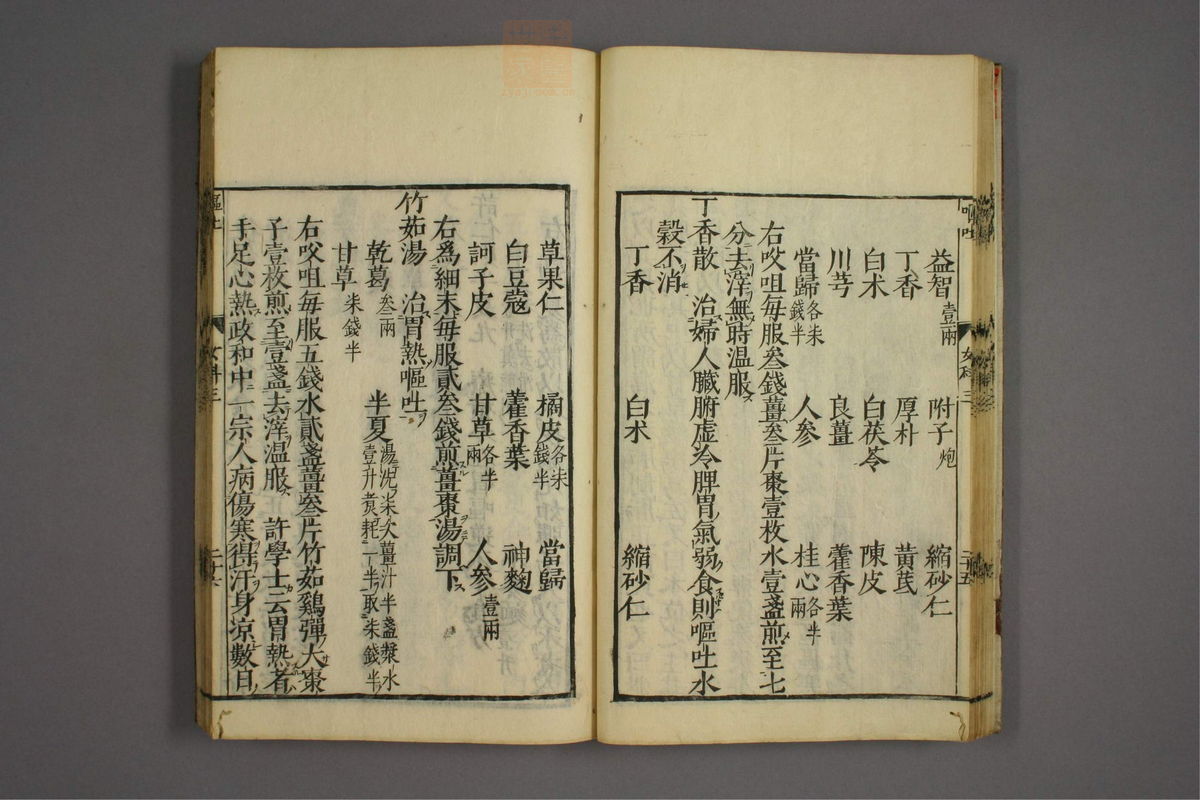 益智壹兩 附子炮 縮砂仁
丁香 厚朴 黃芪
白朮 白茯苓 陳皮
川芎 良薑 藿香葉
當歸各柒錢半 人參 桂心各半兩
右㕮咀每服叁錢薑叁片棗壹枚水壹盞煎至七
分去滓無時温服
丁香散 治婦人臟腑虛冷脾胃氣弱食則嘔吐水
穀不消
丁香 白朮 縮砂仁
草果仁 橘皮各柒錢半 當歸
白豆蔻 藿香葉 神麴
訶子皮 甘草各半兩 人參壹兩
右爲細末每服貳叁錢煎薑棗湯調下
竹茹湯 治胃熱嘔吐
乾葛叁兩 半夏湯洗柒次薑汁半盞漿水壹升煑耗一半取柒錢半
甘草柒錢半
右㕮咀每服五錢水貳盞薑叁片竹茹鷄彈大棗
子壹枚煎至壹盞去滓温服 許學士云胃熱者
手足心熱政和中一宗人病傷寒得汗身凉數日
嘔吐 女科三 二十六